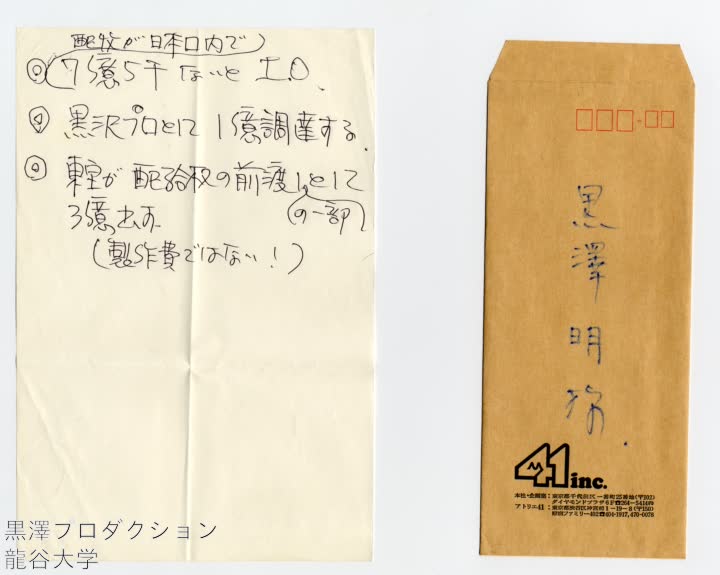 配収が日本口内で
◎ 7億5千ないと I.O.
◎ 黒沢プロとして 1億調達する.
◎ 東宝が 配給权の前渡しとして
の一部
3億出す
(製作費ではない!)
黒澤明様.
41 inc.
本社・企画室:東京都千代田区一番町25番地(〒102)
ダイヤモンドプラザ6F☎264-5414㈹
アトリエ41:東京都渋谷区神宮前1-19-8(〒150)
原宿ファミリー402☎404-1917, 470-0076
黒澤プロダクション
龍谷大学